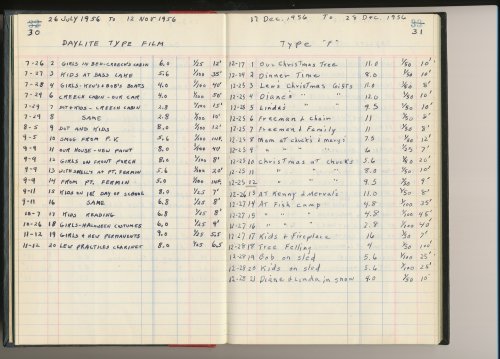 26 July 1956 to 12 Nov 1956
30
DAYLITE TYPE FILM
7-26 2 GIRLS IN BEV-CREECH'S CABIN 6.0 1/25 12'
7-27 3 KIDS AT BASS LAKE 5.6 1/100 35'
7-28 4 GIRLS-KEN'S & BOB'S BOATS 4.0 1/100 50'
7-29 6 CREECH CABIN-OUR CAR 4.0 1/100 40'
7-29 7 CREECH CABIN 2.8 1/100 15'
7-29 8 SAME 2.8 1/100 10'
8-5 9 DOT AND KIDS 8.0 1/50 12'
9-5 10 SMOG FROM P.V. 5.6 1/100 INF.
9-9 11 OUR HOUSE-NEW PAINT 8.0 40'
9-9 12 GIRLS ON FRONT PORCH 8.0 1/100 8'
9-9 13 AT PT. FERMIN 5.6 1/100 20'
9-9 14 FROM PT. FERMIN 5.0 1/100 INF.
9-11 15 KIDS ON 1ST DAY OF SCHOOL 8.0 1/25 7'
9-11 16 SAME 6.8 1/25 8'
10-7 17 KIDS READING 6.8 1/25 8'
10-26 18 GIRLS-HALLOWEEN COSTUMES 6.0 1/25 9'
11-12 19 GIRLS & NEW PERMANENTS 9.0 1/25 5.5
11-12 20 LEW PRACTICES CLARINET 8.0 1/25 6.5
17 Dec. 1956 TO 28 Dec. 1956
31
TYPE "F"
12-17 1 Our Christmas Tree 11.0 1/50 10'
12-24 2 Dinner Time 8.0 1/50 10'
12-25 3 Lews Christmas Gifts 11.0 8'
12-25 4 Dianes " " 12.0 1/50 10'
12-25 5 Lindas " " 9.5 1/50 10'
12-25 6 Freeman & Chain 11 1/50 6'
12-25 7 Freeman & Family 11 1/50 8'
12-25 8 Mom at Chucks & Marys 7.5 1/50 12'
12-25 9 " " " " 6 1/25 7'
12-25 10 Christmas at Chucks 5.6 1/50 20'
12-25 11 " " " 8.0 1/50
12-25 12 " " " 9.5 1/50 9'
12-26 13 At Kenny & Merva's 11.0 1/50 8'
12-27 14 At Fish Camp 4.8 1/100 35'
12-27 15 " " " 4.8 1/100 45'
12-27 16 " " " 2.8 1/100 40'
12-27 17 Kids & Fireplace 16 1/50 7'
12-28 18 Tree Felling 4 1/50 100'
12-28 19 Bob on sled 5.6 1/100 25'
12-28 20 Kids on sled 5.6 1/100 25'
12-28 21 Diane & Linda in snow 4.0 1/50 10'